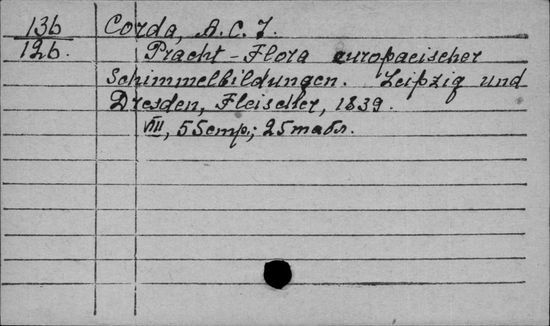 136 Corda, A. C. I.
126. Pracht-Flora europaeischer
Schimmelbildungen. Leipzig und
Dresden, Fleischer, 1839.
VIII, 55 стр.; 25 табл.